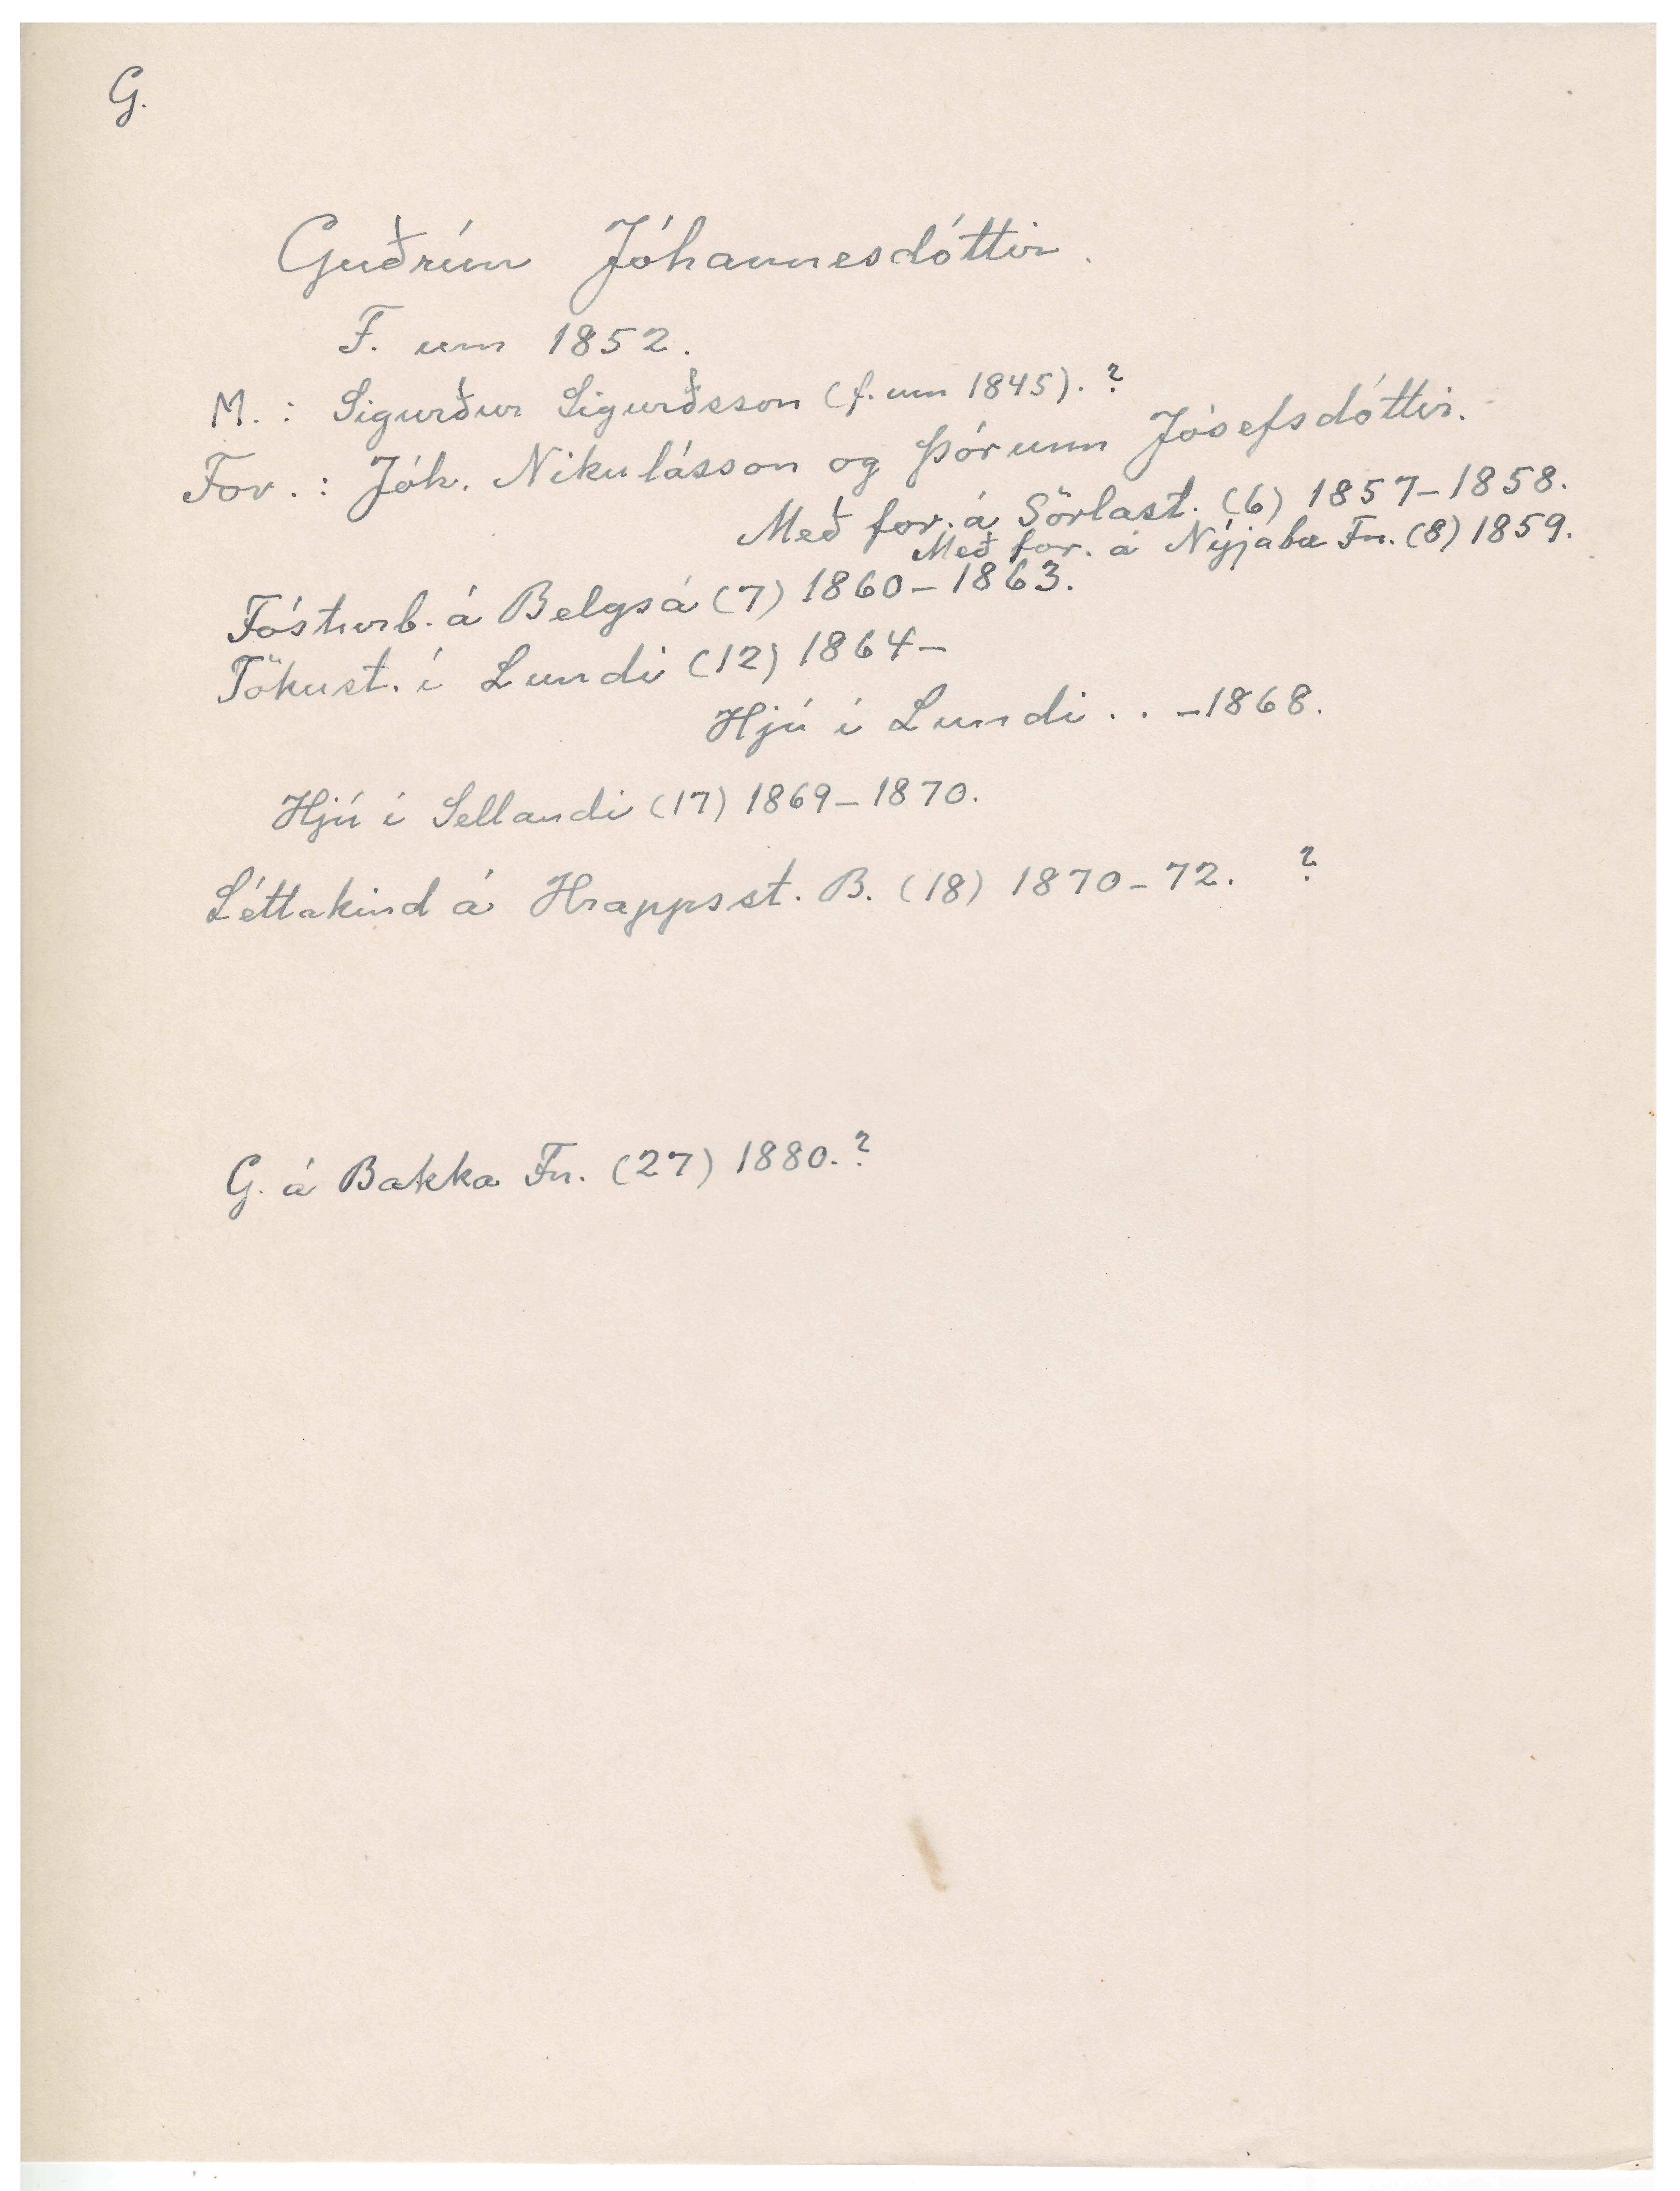 G.
Guðrún Jóhannesdóttir.
F. um 1852.
M. : Sigurður Sigurðsson (f. um 1845). ?
For. : Jóh. Nikulásson og Þórunn Jósefsdóttir.
Með for. á Sörlast. (6) 1857-1858.
Með for. á Nýjabæ Fn. (8) 1859.
Fósturb. á Belgsá (7) 1860-1863.
Tökust. í Lundi (12) 1864-
Hjú í Lundi . . -1868.
Hjú í Sellandi (17) 1869-1870.
Léttakind á Hrappsst. B. (18) 1870-72. ?
G. á Bakka Fn. (27) 1880. ?